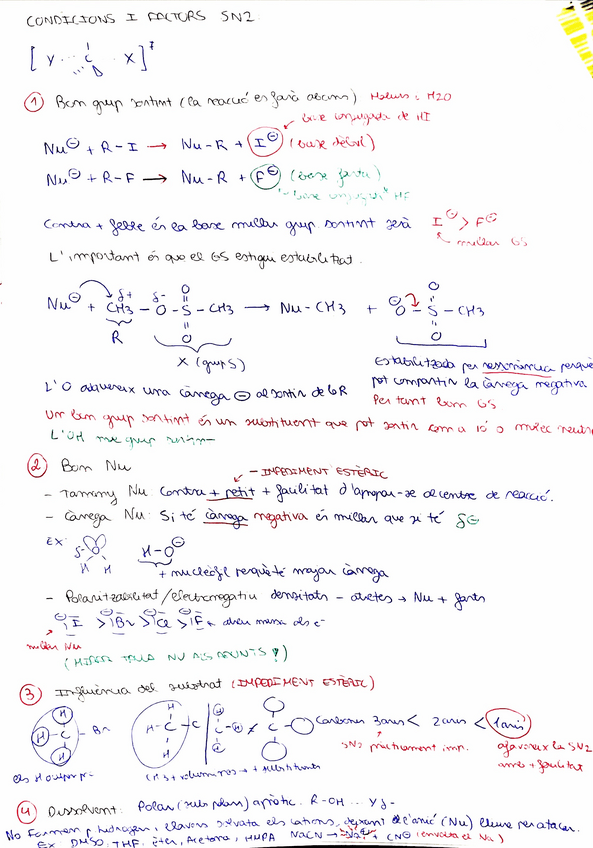 CONDICIONS I FACTORS SN2:
[ Y ... C ... X ]‡
① Bon grup sortint (la reacció es farà abans) Halurs i H2O
base conjugada de HI
Nu⊖ + R - I → Nu - R + I⊖ (base dèbil)
Nu⊖ + R - F → Nu - R + F⊖ (base forta)
base conjugada HF
Contra + feble és la base millor grup sortint serà I⊖ > F⊖
millor GS
L'important és que el GS estigui estabilitzat.
O O
Nu⊖ + CH3 - O - S - CH3 → Nu - CH3 + ⊖O - S - CH3
δ+ δ-
R O O
X (grup S) Estabilitzada per ressonància perquè
pot compartir la càrrega negativa
L'O adquereix una càrrega ⊖ al sortir de la R Per tant bon GS
Un bon grup sortint és un substituent que pot sortir com a ió o molec neutra
L'OH mal grup sortint
② Bon Nu
- IMPEDIMENT ESTÈRIC
- Tamany Nu. Contra + petit + facilitat d'apropar-se al centre de reacció.
- Càrrega Nu: Si té càrrega negativa és millor que si té δ⊖
EX: δ- O H H H - O⊖
+ nucleòfil perquè té major càrrega
- Polaritzabilitat/electronegatiu densitats → Nu + forts
⊖I > ⊖Br > ⊖Cl > ⊖F
millor Nu
(MIRAR TAULA NU ALS APUNTS!)
③ Influència del substrat (IMPEDIMENT ESTÈRIC)
H H C - Br H H - C - C H C - H C Carbonis 3aris < 2aris < 1aris
SN2 pràcticament imp. afavoreix la SN2
amb + facilitat
④ Dissolvent: Polar apròtic. R-OH
No formen p. hidrogen, llavors solvata els cations, deixant l'anió (Nu) lliure per atacar.
Ex: DMSO, THF, èter, Acetona, HMPA NaCN → Na⊕ + CN⊖ (envolta el Na)